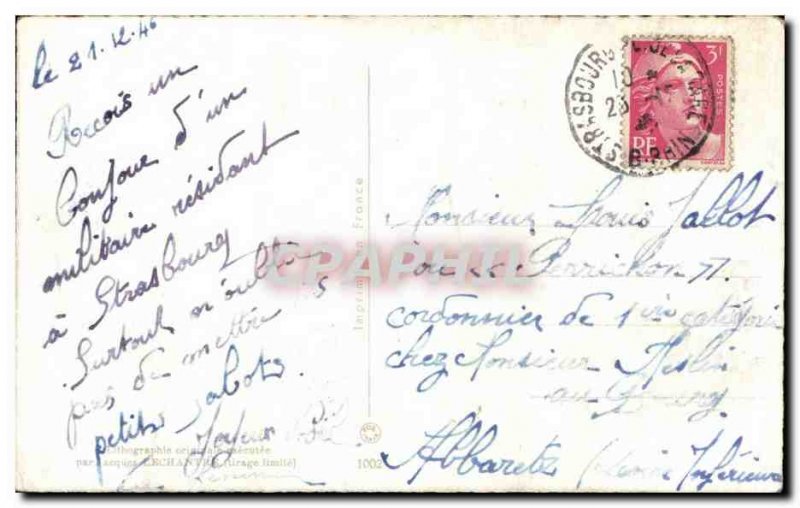 le 21.12.46
Recois un
bonjour d'un
militaire résidant
à Strasbourg
Surtout n'oublie
pas de mettre
petits sabots
Joyeux Noël
Lithographie originale exécutée
par Jacques LECHANTRE (tirage limité)
1002
Imprimé en France
CPAPHIL
STRASBOURG
B-RHIN
3F
POSTES
RF
Monsieur Louis Jallot
Perrichon 77
cordonnier de 1ère catégorie
chez Monsieur
au
Abbaretz (Loire Inférieure